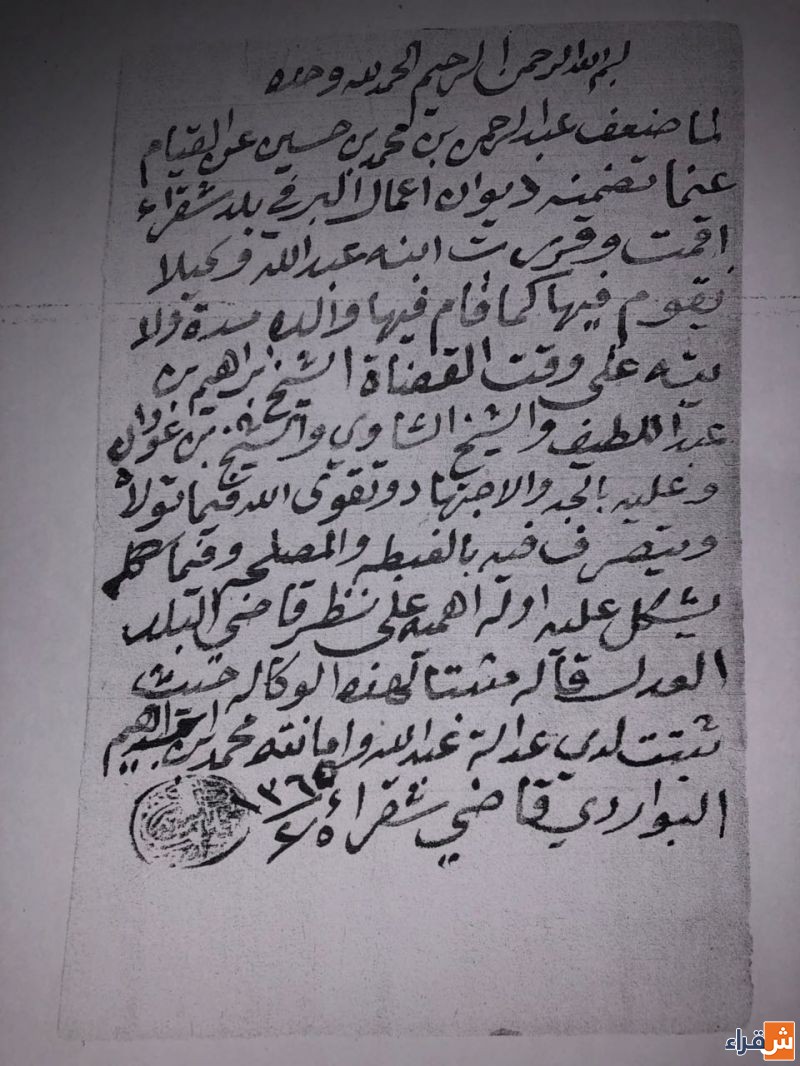 بسم الله الرحمن الرحيم الحمد لله وحده
لما ضعف عبد الرحمن بن محمد بن حسين عن القيام
عنما تضمنه ديوان اعمال البر في بلد شقراء
اقمت وقررت ابنه عبد الله وكيلا
يقوم فيها كما قام فيها والده مدة ولا
يته على وقت القضاة الشيخ ابراهيم بن
عبد اللطيف والشيخ الشاوي والشيخ بن عودان
وعليه بالجد والاجتهاد وتقوى الله فيما تولاه
ويتصرف فيه بالغبطه والمصلحه وفيما
يشكل عليه اوله اهميه على نظر قاضي البلد
العدل قاله مثبتا لهذه الوكاله حيث
ثبتت لدي عدالة عبد الله وامانته محمد ابن ابراهيم
البواردي قاضي شقراء
شقراء